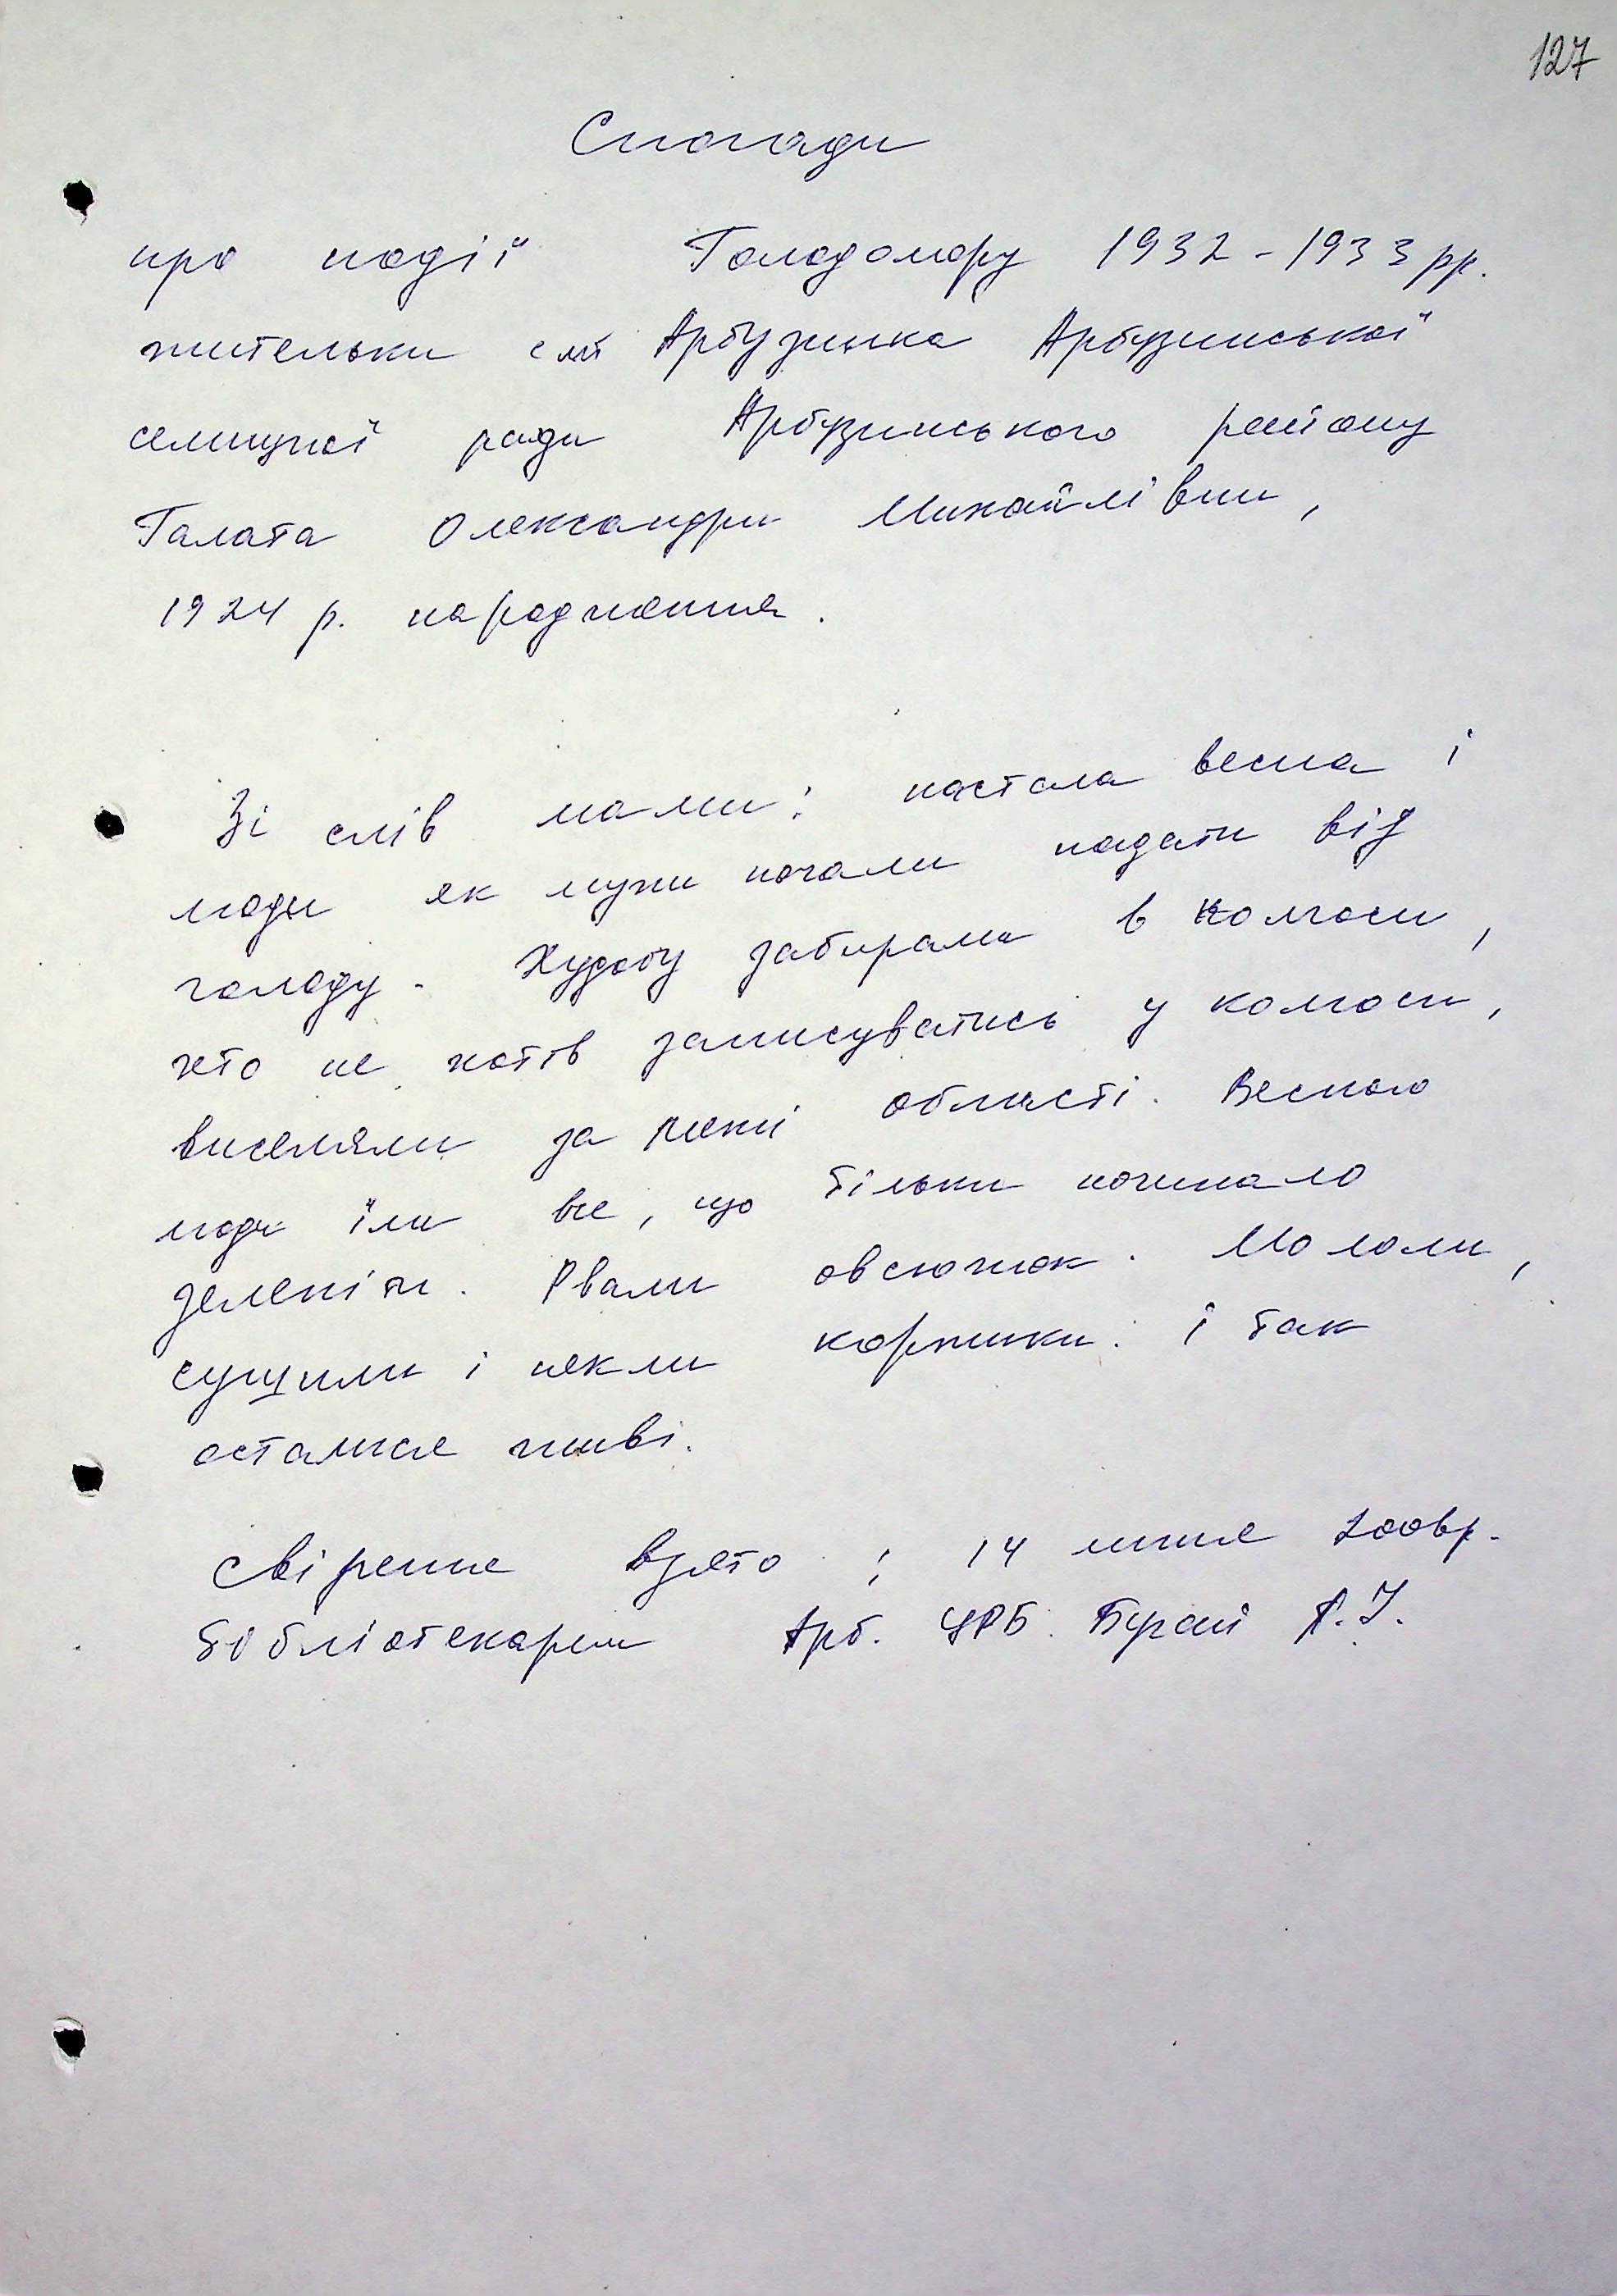 127
Спогади
про події Голодомору 1932-1933 рр.
жительки смт Арбузинка Арбузинської
селищної ради Арбузинського району
Галата Олександри Михайлівни,
1924 р. народження.
Зі слів мами: настала весна і
люди як мухи почали падати від
голоду. Худобу забирали в колгоспи,
хто не хотів записуватись у колгосп,
виселяли за межі області. Весною
люди їли все, що тільки починало
зеленіти. Рвали овсюжок. Мололи,
сушили і пекли коржики. і так
осталися живі.
Свідчення взято: 14 липня 2006р.
бібліотекарем Арб. ЦРБ.